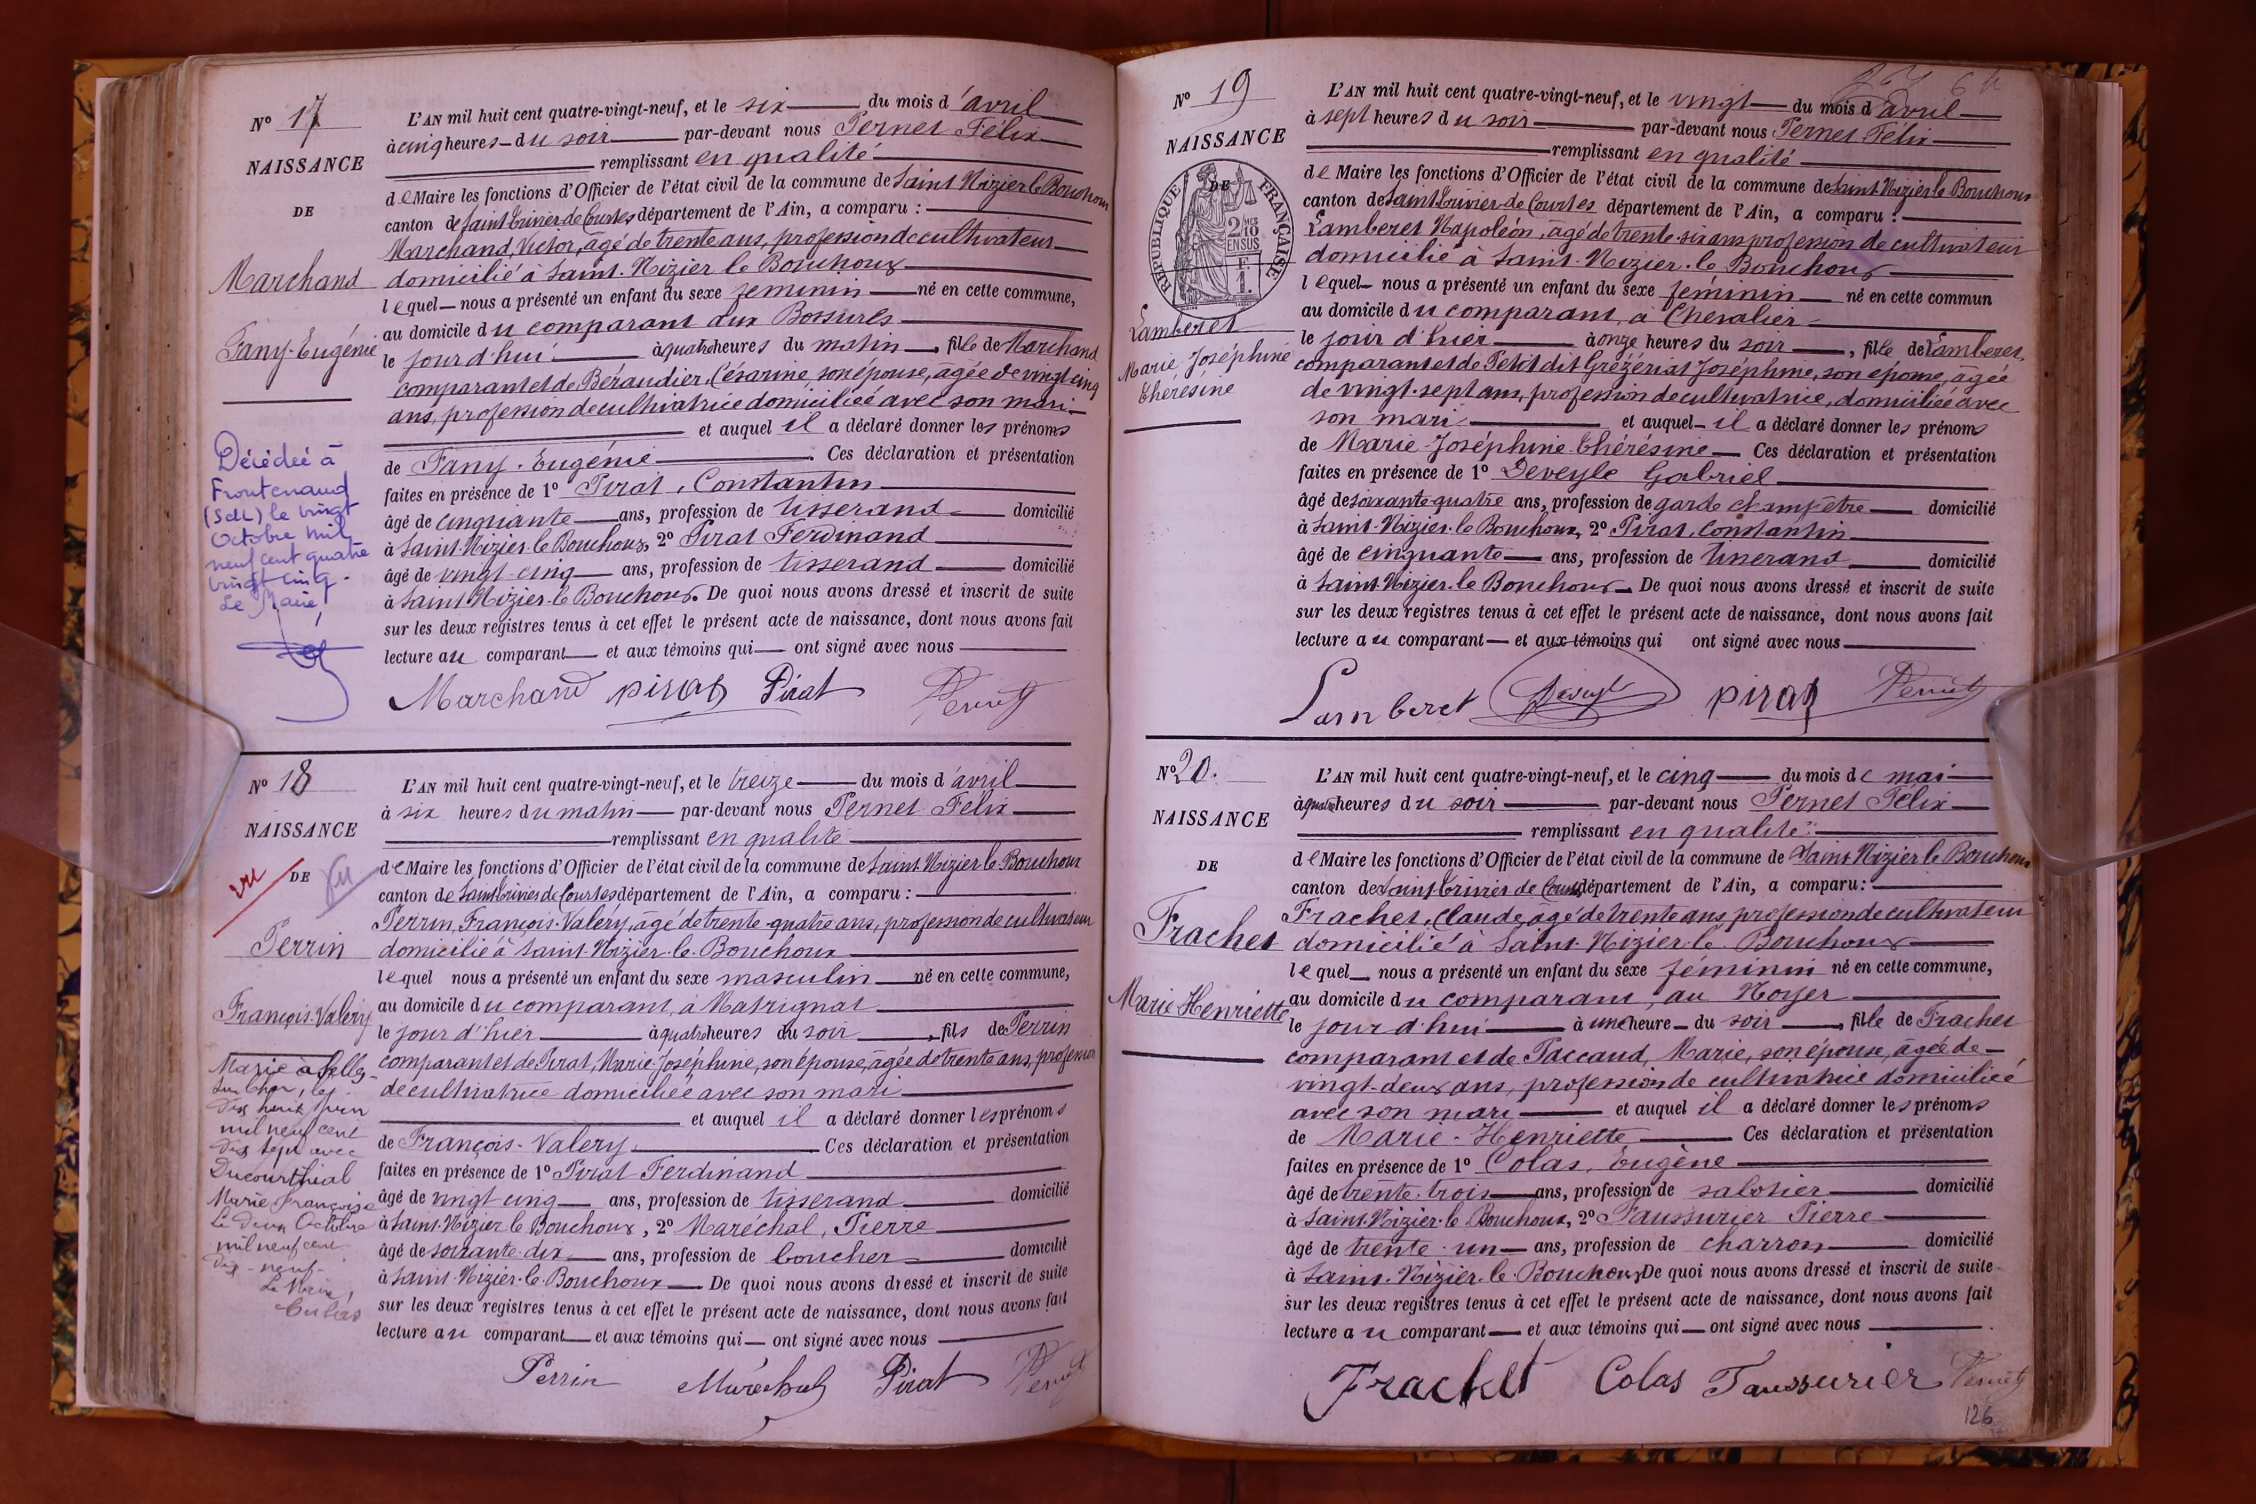 N° 17
NAISSANCE
DE
Marchand
Fany-Eugénie
Décédée à
Frontenaud
(SdL) le vingt
Octobre mil
neuf cent quatre
vingt cinq.
Le Maire,
L'AN mil huit cent quatre-vingt-neuf, et le six du mois d'avril
à cinq heures du soir par-devant nous Pernet Félix
remplissant en qualité
de Maire les fonctions d'Officier de l'état civil de la commune de Saint Nizier le Bouchoux
canton de Saint Trivier de Courtes département de l'Ain, a comparu :
Marchand, Victor, âgé de trente ans, profession de cultivateur
domicilié à Saint-Nizier le Bouchoux
lequel nous a présenté un enfant du sexe féminin né en cette commune,
au domicile du comparant aux Bossures
le jour d'hui à quatre heures du matin, fille de Marchand
comparant et de Béraudier, Césarine, son épouse, agée de vingt cinq
ans, profession de cultivatrice domiciliée avec son mari
et auquel il a déclaré donner les prénoms
de Fany-Eugénie. Ces déclaration et présentation
faites en présence de 1° Pirat, Constantin
âgé de cinquante ans, profession de tisserand domicilié
à Saint-Nizier-le Bouchoux, 2° Pirat Ferdinand
âgé de vingt-cinq ans, profession de tisserand domicilié
à Saint Nizier-le Bouchoux. De quoi nous avons dressé et inscrit de suite
sur les deux registres tenus à cet effet le présent acte de naissance, dont nous avons fait
lecture au comparant et aux témoins qui ont signé avec nous
Marchand pirat Pirat Pernet
N° 18
NAISSANCE
vu DE vu
Perrin
François-Valery
Marié à Selles-
sur Cher, le
dix huit Juin
mil neuf cent
dix sept avec
Ducourthial
Marie Françoise
Le deux Octobre
mil neuf cent
dix-neuf-
Le Maire,
L'AN mil huit cent quatre-vingt-neuf, et le treize du mois d'avril
à six heures du matin par-devant nous Pernet Félix
remplissant en qualité
de Maire les fonctions d'Officier de l'état civil de la commune de Saint Nizier le Bouchoux
canton de Saint Trivier de Courtes département de l'Ain, a comparu :
Perrin, François-Valery, âgé de trente-quatre ans, profession de cultivateur
domicilié à Saint-Nizier-le-Bouchoux
lequel nous a présenté un enfant du sexe masculin né en cette commune,
au domicile du comparant, à Matrignat
le jour d'hier à quatre heures du soir, fils de Perrin
comparant et de Pirat, Marie Joséphine, son épouse, âgée de trente ans, profession
de cultivatrice domiciliée avec son mari
et auquel il a déclaré donner les prénoms
de François-Valery. Ces déclaration et présentation
faites en présence de 1° Pirat Ferdinand
âgé de vingt cinq ans, profession de tisserand domicilié
à Saint-Nizier le Bouchoux, 2° Maréchal, Pierre
âgé de soixante-dix ans, profession de boucher domicilié
à Saint-Nizier-le-Bouchoux De quoi nous avons dressé et inscrit de suite
sur les deux registres tenus à cet effet le présent acte de naissance, dont nous avons fait
lecture au comparant et aux témoins qui ont signé avec nous
Perrin Maréchal Pirat Pernet
N° 19
NAISSANCE
DE
RÉPUBLIQUE FRANÇAISE
2 MES
10
EN SUS
F.
1.
Lamberet
Marie, Joséphine
Thérésine
L'AN mil huit cent quatre-vingt-neuf, et le vingt du mois d'avril
à sept heures du soir par-devant nous Pernet Félix
remplissant en qualité
de Maire les fonctions d'Officier de l'état civil de la commune de Saint Nizier le Bouchoux
canton de Saint Trivier de Courtes département de l'Ain, a comparu :
Lamberet Napoléon, âgé de trente-six ans profession de cultivateur
domicilié à Saint-Nizier-le-Bouchoux
lequel nous a présenté un enfant du sexe féminin né en cette commun
au domicile du comparant, à Chevalier
le jour d'hier à onze heures du soir, fille de Lamberet,
comparant et de Petit dit Grézériat Joséphine, son épouse, âgée
de vingt-sept ans, profession de cultivatrice, domiciliée avec
son mari et auquel il a déclaré donner les prénoms
de Marie-Joséphine-Thérésine Ces déclaration et présentation
faites en présence de 1° Deveyle Gabriel
âgé de soixante-quatre ans, profession de garde champêtre domicilié
à Saint-Nizier-le Bouchoux, 2° Pirat, Constantin
âgé de cinquante ans, profession de tisserand domicilié
à Saint-Nizier-le Bouchoux De quoi nous avons dressé et inscrit de suite
sur les deux registres tenus à cet effet le présent acte de naissance, dont nous avons fait
lecture au comparant et aux témoins qui ont signé avec nous
Lamberet Deveyle pirat Pernet
N° 20.
NAISSANCE
DE
Frachet
Marie Henriette
L'AN mil huit cent quatre-vingt-neuf, et le cinq du mois de mai
à quatre heures du soir par-devant nous Pernet Félix
remplissant en qualité
de Maire les fonctions d'Officier de l'état civil de la commune de Saint Nizier le Bouchoux
canton de Saint Trivier de Courtes département de l'Ain, a comparu :
Frachet, Claude, âgé de trente ans profession de cultivateur
domicilié à Saint-Nizier-le-Bouchoux
lequel nous a présenté un enfant du sexe féminin né en cette commune,
au domicile du comparant, au Noyer
le jour d'hui à une heure du soir, fille de Frachet
comparant et de Paccaud, Marie, son épouse, âgée de
vingt-deux ans, profession de cultivatrice domiciliée
avec son mari et auquel il a déclaré donner les prénoms
de Marie-Henriette Ces déclaration et présentation
faites en présence de 1° Colas, Eugène
âgé de trente-trois ans, profession de sabotier domicilié
à Saint-Nizier-le Bouchoux, 2° Faussurier Pierre
âgé de trente-un ans, profession de charron domicilié
à Saint-Nizier-le-Bouchoux De quoi nous avons dressé et inscrit de suite
sur les deux registres tenus à cet effet le présent acte de naissance, dont nous avons fait
lecture au comparant et aux témoins qui ont signé avec nous
Frachet Colas Faussurier Pernet
126